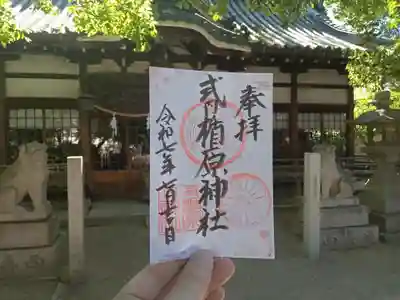 奉拝
式内楯原神社
令和七年十月十二日